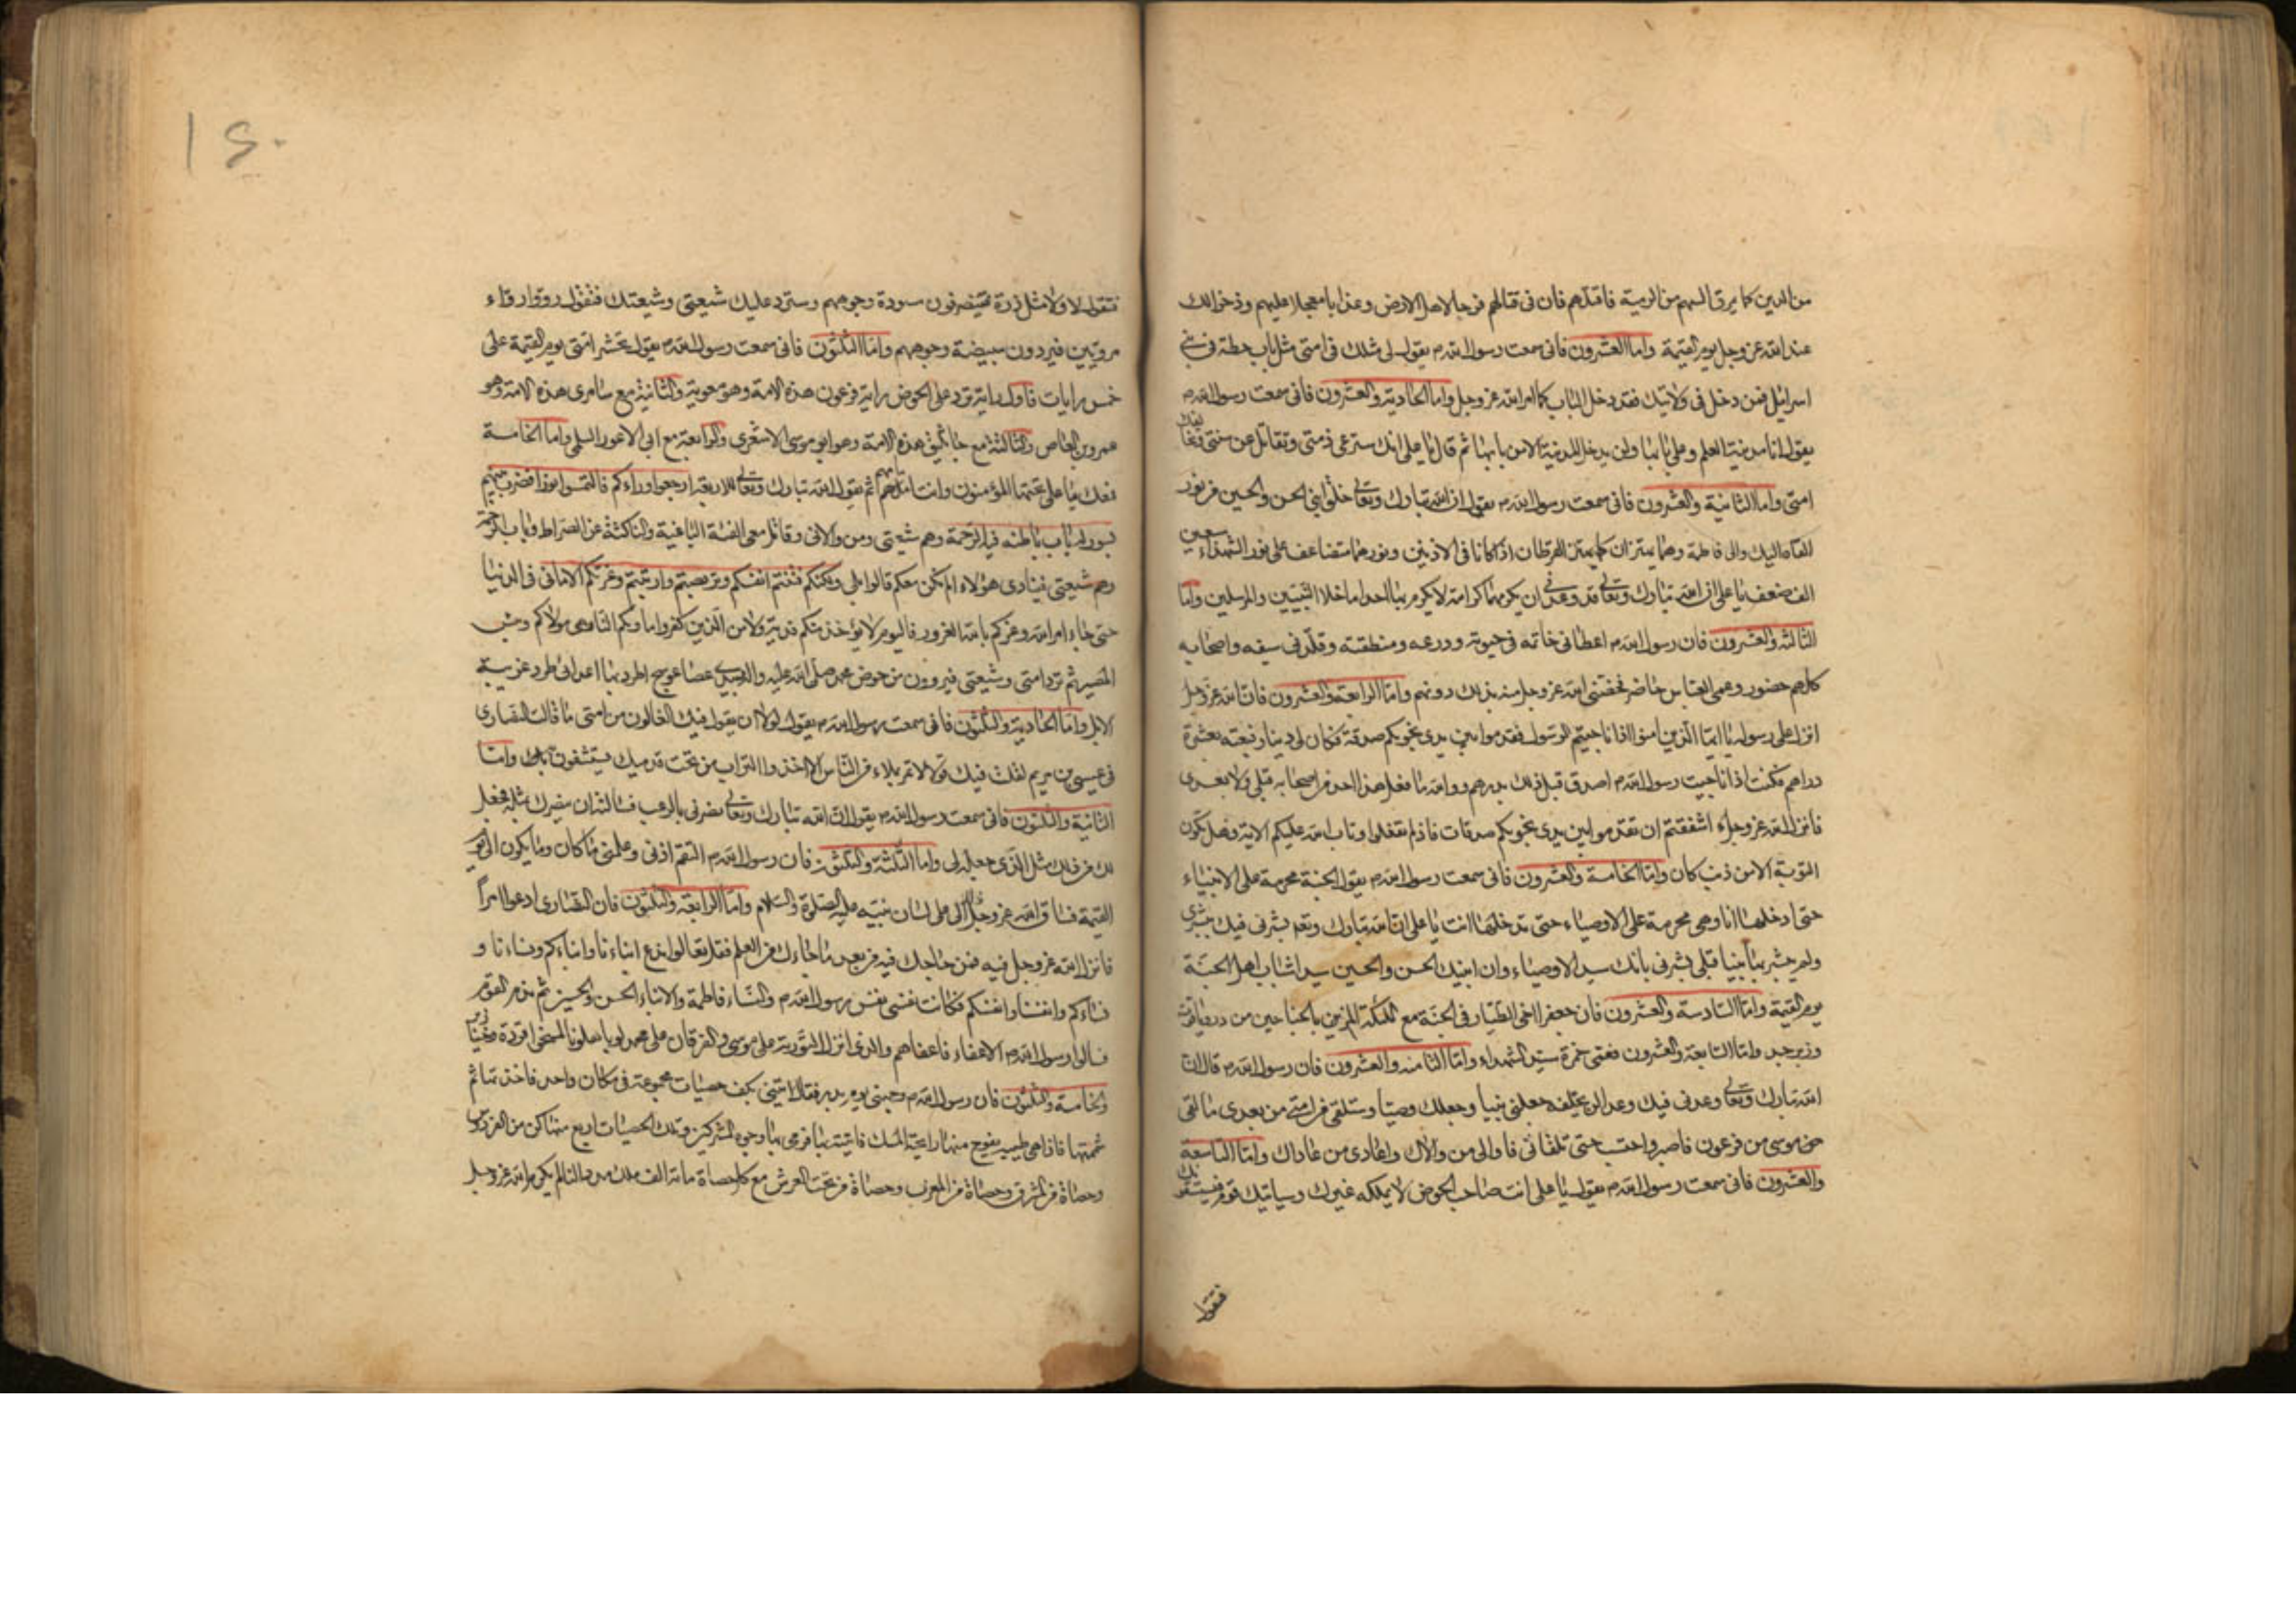 من الدين كما يمرق السهم من الرمية فاقتلهم فان فى قتالهم فرجا لاهل الارض وعذابا معجلا عليهم وذخرا لك
عند الله عز وجل يوم القيمة واما العشرون فانى سمعت رسول الله ص يقول لى مثلك فى امتى مثل باب حطة فى بنى
اسرائيل فمن دخل فى ولايتك فقد دخل الباب كما امر الله عز وجل واما الحادية والعشرون فانى سمعت رسول الله ص
يقول انا مدينة العلم وعلى بابها ولن يدخل المدينة الا من بابها ثم قال يا على انك سترعى ذمتى وتقاتل عن سنتى وتخالفك
امتى واما الثانية والعشرون فانى سمعت رسول الله ص يقول ان الله تبارك وتعالى خلق ابنى الحسن والحسين من نور
القاه اليك والى فاطمة وهما يهتزان كما يهتز القرطان اذا كانا فى الاذنين ونورهما متضاعف على نور الشهداء سبعين
الف ضعف يا على ان الله تبارك وتعالى قد وعدنى ان يكرمهما كرامة لا يكرم بها احدا ما خلا النبيين والمرسلين واما
الثالثة والعشرون فان رسول الله ص اعطانى خاتمه فى حيوته ودرعه ومنطقته وقلدنى سيفه واصحابه
كلهم حضور وعمى العباس حاضر فخصنى الله عز وجل منه بذلك دونهم واما الرابعة والعشرون فان الله عز وجل
انزل على رسوله يا ايها الذين امنوا اذا ناجيتم الرسول فقدموا بين يدى نجويكم صدقة فكان لى دينار فبعته بعشرة
دراهم فكنت اذا ناجيت رسول الله ص اصدق قبل ذلك بدرهم ووالله ما فعل هذا احد من اصحابه قبلى ولا بعدى
فانزل الله عز وجل ءاشفقتم ان تقدموا بين يدى نجويكم صدقات فاذ لم تفعلوا وتاب الله عليكم الاية فهل تكون
التوبة الا من ذنب كان واما الخامسة والعشرون فانى سمعت رسول الله ص يقول الجنة محرمة على الانبياء
حتى ادخلها انا وهى محرمة على الاوصياء حتى تدخلها انت يا على ان الله تبارك وتعالى بشرنى فيك ببشرى
ولم يبشر بها نبيا قبلى بشرنى بانك سيد الاوصياء وان ابنيك الحسن والحسين سيدا شباب اهل الجنة
يوم القيمة واما السادسة والعشرون فان جعفرا اخى الطيار فى الجنة مع الملئكة المزين بالجناحين من در وياقوت
وزبرجد واما السابعة والعشرون فعمى حمزة سيد الشهداء واما الثامنة والعشرون فان رسول الله ص قال ان
الله تبارك وتعالى وعدنى فيك وعدا لن يخلفه جعلنى نبيا وجعلك وصيا وستلقى من امتى من بعدى ما لقى
موسى من فرعون فاصبر واحتسب حتى تلقانى فاوالى من والاك واعادى من عاداك واما التاسعة
والعشرون فانى سمعت رسول الله ص يقول يا على انت صاحب الحوض لا يملكه غيرك وسياتيك قوم فيستسقونك
فتقول
فتقول لا ولا مثل ذرة فينصرفون مسودة وجوههم وسترد عليك شيعتى وشيعتك فتقول رووا رواء
مرويين فيردون مبيضة وجوههم واما الثلثون فانى سمعت رسول الله ص يقول تحشر امتى يوم القيمة على
خمس رايات فاول راية ترد على الحوض راية فرعون هذه الامة وهو معوية والثانية مع سامرى هذه الامة وهو
عمرو بن العاص والثالثة مع جاثليق هذه الامة وهو ابو موسى الاشعرى والرابعة مع ابى الاعور السلمى واما الخامسة
فمعك يا على تحتها المؤمنون وانت امامهم ثم يقول الله تبارك وتعالى للاربعة ارجعوا وراءكم فالتمسوا نورا فضرب بينهم
بسور له باب باطنه فيه الرحمة وهم شيعتى ومن والانى وقاتل معى الفئة الباغية والناكثة عن الصراط وباب الرحمة
وهم شيعتى فينادى هؤلاء الم نكن معكم قالوا بلى ولكنكم فتنتم انفسكم وتربصتم وارتبتم وغرتكم الامانى فى الدنيا
حتى جاء امر الله وغركم بالله الغرور فاليوم لا يؤخذ منكم فدية ولا من الذين كفروا ماويكم النار هى مولاكم وبئس
المصير ثم ترد امتى وشيعتى فيروون من حوض محمد صلى الله عليه واله وبيدى عصا عوسج اطرد بها اعدائى طرد غريبة
الابل واما الحادية والثلثون فانى سمعت رسول الله ص يقول لولا ان يقول فيك الغالون من امتى ما قالت النصارى
فى عيسى بن مريم لقلت فيك قولا لا تمر بملاء من الناس الا اخذوا التراب من تحت قدميك يستشفون به واما
الثانية والثلثون فانى سمعت رسول الله ص يقول ان الله تبارك وتعالى نصرنى بالرعب فسالته ان ينصرك بمثله فجعل
لك من ذلك مثل الذى جعله لى واما الثالثة والثلثون فان رسول الله ص التقم اذنى وعلمنى ما كان وما يكون الى يوم
القيمة فساق الله عز وجل ذلك الى على لسان نبيه عليه الصلوة والسلام واما الرابعة والثلثون فان النصارى ادعوا امرا
فانزل الله عز وجل فيه فمن حاجك فيه من بعد ما جاءك من العلم فقل تعالوا ندع ابناءنا وابناءكم ونساءنا و
نساءكم وانفسنا وانفسكم فكانت نفسى نفس رسول الله ص والنساء فاطمة والابناء الحسن والحسين ثم ندم القوم
فسالوا رسول الله ص الاعفاء فاعفاهم والذى انزل التورية على موسى والفرقان على محمد لو باهلونا لمسخوا قردة وخنازير
والخامسة والثلثون فان رسول الله ص وجهنى يوم بدر فقال ائتنى بكف حصيات مجموعة فى مكان واحد فاخذتها ثم
شممتها فاذا هى طيبة يفوح منها رائحة المسك فاتيته بها فرمى بها وجوه المشركين وتلك الحصيات اربع منها كن من الفردوس
وحصاة من المشرق وحصاة من المغرب وحصاة من تحت العرش مع كل حصاة مائة الف ملك مددا لنا لم يكرم الله عز وجل